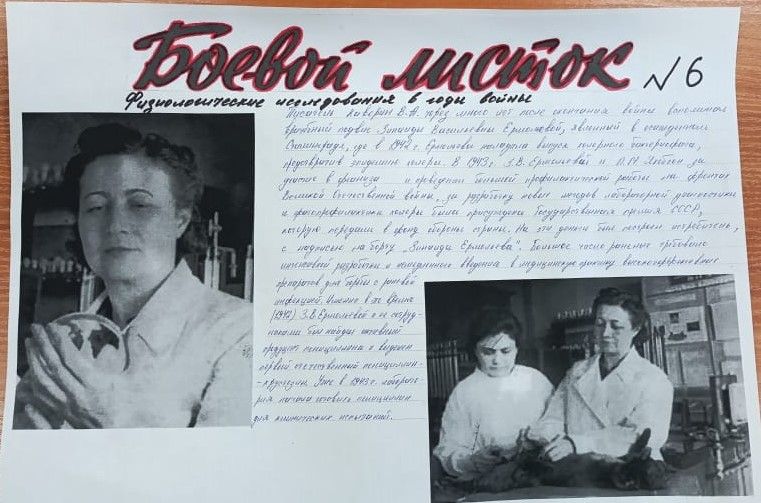 Боевой листок №6
Физиологические исследования в годы войны
Писатель Каверин В.А. через много лет после окончания войны вспоминал
врачебный подвиг Зинаиды Виссарионовны Ермольевой, явленный в осажденном
Сталинграде, где в 1942 г. Ермольева наладила выпуск холерного бактериофага,
предотвратив эпидемию холеры. В 1943г. З.В.Ермольевой и Л.М. за
участие в и проведение большой профилактической работы на фронтах
Великой Отечественной войны, за разработку новых методов лабораторной диагностики
и фагопрофилактики холеры была присуждена Государственная премия СССР,
которую передали в фонд обороны страны. На эти деньги был построен истребитель,
с надписью на борту "Зинаида Ермольева". Большое число раненых требовало
интенсивной разработки и немедленного введения в медицинскую практику высокоэффективных
препаратов для борьбы с раневой
инфекцией. Именно в это время
(1942) З.В.Ермольевой и ее сотруд-
никами был найден активный
продуцент пенициллина и выделен
первый отечественный пенициллин-
-крустозин. Уже в 1943г. лаборато-
рия начала готовить пенициллин
для клинических испытаний.